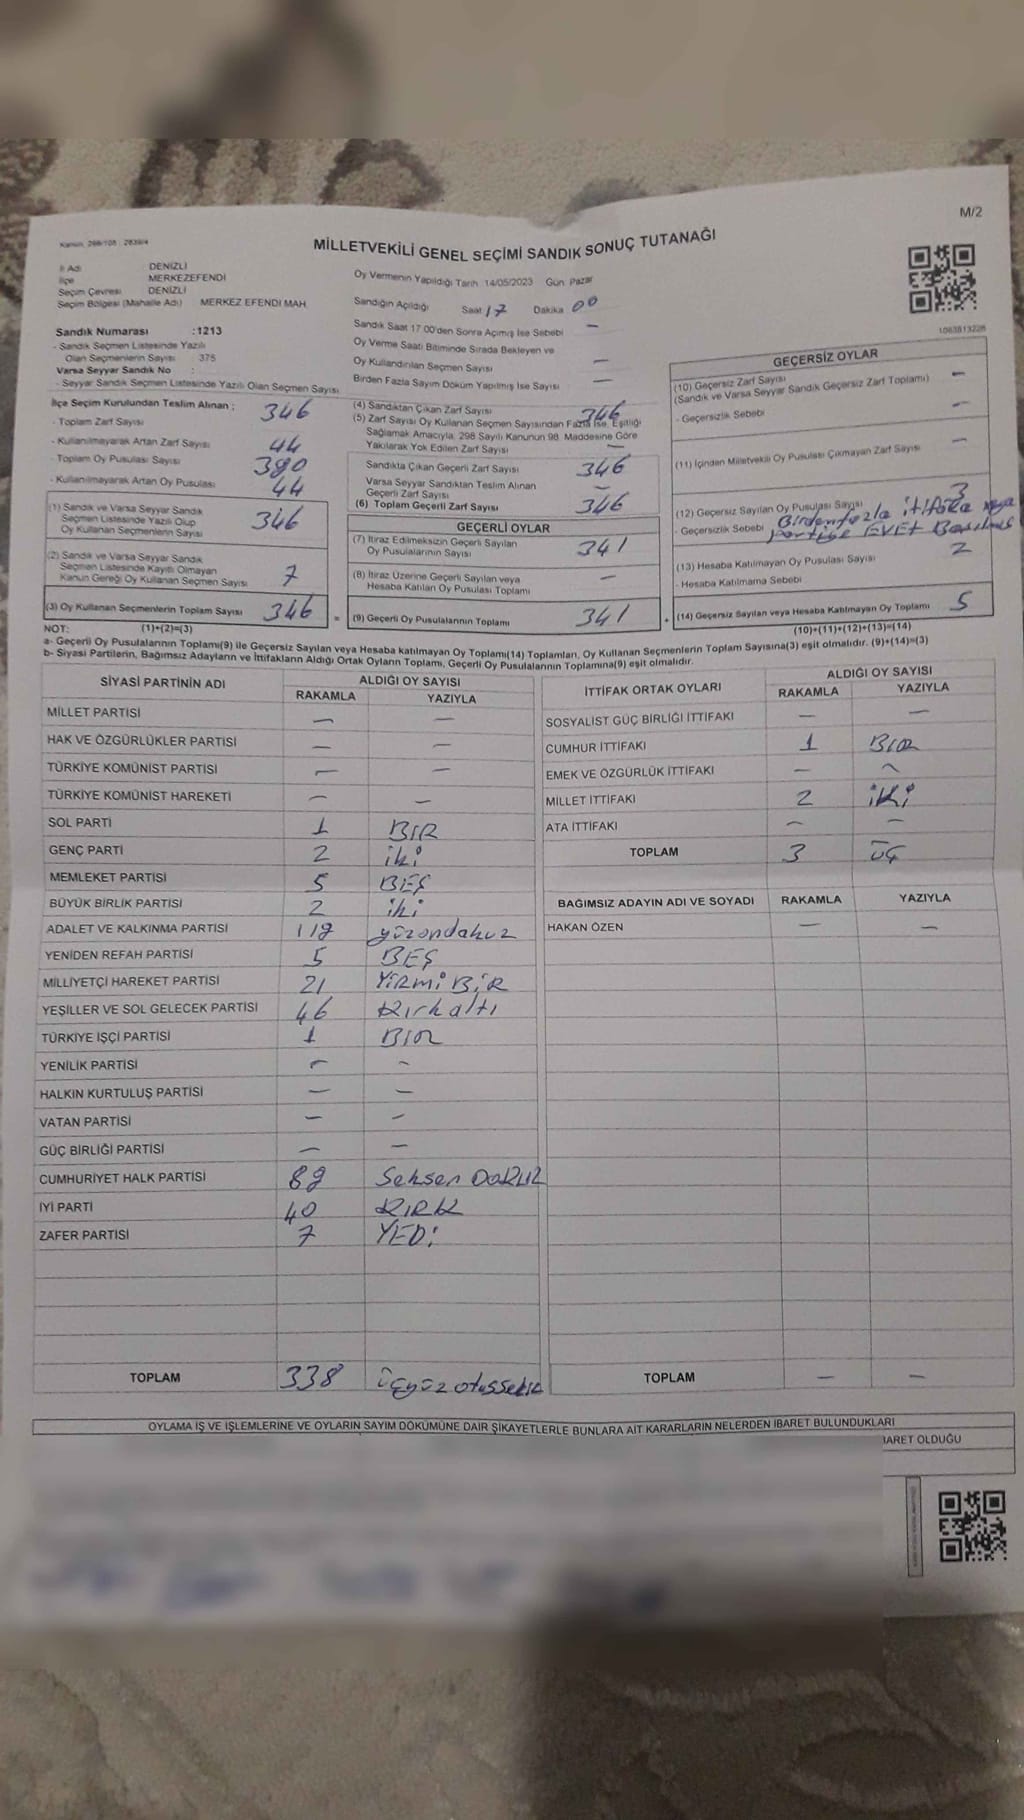 M/2
Kanun, 298/105 ; 2839/4
MİLLETVEKİLİ GENEL SEÇİMİ SANDIK SONUÇ TUTANAĞI
İl Adı DENİZLİ
İlçe MERKEZEFENDİ
Seçim Çevresi DENİZLİ
Seçim Bölgesi (Mahalle Adı) MERKEZ EFENDİ MAH.
Sandık Numarası :1213
- Sandık Seçmen Listesinde Yazılı
Olan Seçmenlerin Sayısı 375
Varsa Seyyar Sandık No :
- Seyyar Sandık Seçmen Listesinde Yazılı Olan Seçmen Sayısı
İlçe Seçim Kurulundan Teslim Alınan ;
- Toplam Zarf Sayısı 346
- Kullanılmayarak Artan Zarf Sayısı 44
- Toplam Oy Pusulası Sayısı 380
- Kullanılmayarak Artan Oy Pusulası 44
(1) Sandık ve Varsa Seyyar Sandık
Seçmen Listesinde Yazılı Olup
Oy Kullanan Seçmenlerin Sayısı 346
(2) Sandık ve Varsa Seyyar Sandık
Seçmen Listesinde Kayıtlı Olmayan
Kanun Gereği Oy Kullanan Seçmen Sayısı 7
(3) Oy Kullanan Seçmenlerin Toplam Sayısı 346 =
(1)+(2)=(3)
Oy Vermenin Yapıldığı Tarih 14/05/2023 Gün Pazar
Sandığın Açıldığı Saat 17 Dakika 00
Sandık Saat 17:00'den Sonra Açılmış İse Sebebi —
Oy Verme Saati Bitiminde Sırada Bekleyen ve
Oy Kullandırılan Seçmen Sayısı —
Birden Fazla Sayım Döküm Yapılmış İse Sayısı —
(4) Sandıktan Çıkan Zarf Sayısı 346
(5) Zarf Sayısı Oy Kullanan Seçmen Sayısından Fazla İse, Eşitliği
Sağlamak Amacıyla, 298 Sayılı Kanunun 98. Maddesine Göre
Yakılarak Yok Edilen Zarf Sayısı —
Sandıkta Çıkan Geçerli Zarf Sayısı 346
Varsa Seyyar Sandıktan Teslim Alınan
Geçerli Zarf Sayısı —
(6) Toplam Geçerli Zarf Sayısı 346
GEÇERLİ OYLAR
(7) İtiraz Edilmeksizin Geçerli Sayılan
Oy Pusulalarının Sayısı 341
(8) İtiraz Üzerine Geçerli Sayılan veya
Hesaba Katılan Oy Pusulası Toplamı —
(9) Geçerli Oy Pusulalarının Toplamı 341 +
1083813226
GEÇERSİZ OYLAR
(10) Geçersiz Zarf Sayısı —
(Sandık ve Varsa Seyyar Sandık Geçersiz Zarf Toplamı)
- Geçersizlik Sebebi —
(11) İçinden Milletvekili Oy Pusulası Çıkmayan Zarf Sayısı —
(12) Geçersiz Sayılan Oy Pusulası Sayısı 3
- Geçersizlik Sebebi Birden fazla ittifaka veya
partiye EVET Basılmış
(13) Hesaba Katılmayan Oy Pusulası Sayısı 2
- Hesaba Katılmama Sebebi
(14) Geçersiz Sayılan veya Hesaba Katılmayan Oy Toplamı 5
(10)+(11)+(12)+(13)=(14)
NOT:
a- Geçerli Oy Pusulalarının Toplamı(9) ile Geçersiz Sayılan veya Hesaba katılmayan Oy Toplamı(14) Toplamları, Oy Kullanan Seçmenlerin Toplam Sayısına(3) eşit olmalıdır. (9)+(14)=(3)
b- Siyasi Partilerin, Bağımsız Adayların ve İttifakların Aldığı Ortak Oyların Toplamı, Geçerli Oy Pusulalarının Toplamına(9) eşit olmalıdır.
SİYASİ PARTİNİN ADI ALDIĞI OY SAYISI
RAKAMLA YAZIYLA
MİLLET PARTİSİ — —
HAK VE ÖZGÜRLÜKLER PARTİSİ — —
TÜRKİYE KOMÜNİST PARTİSİ — —
TÜRKİYE KOMÜNİST HAREKETİ — —
SOL PARTİ 1 BİR
GENÇ PARTİ 2 iki
MEMLEKET PARTİSİ 5 BEŞ
BÜYÜK BİRLİK PARTİSİ 2 iki
ADALET VE KALKINMA PARTİSİ 119 yüzondokuz
YENİDEN REFAH PARTİSİ 5 BEŞ
MİLLİYETÇİ HAREKET PARTİSİ 21 YİRMİ BİR
YEŞİLLER VE SOL GELECEK PARTİSİ 46 Kırkaltı
TÜRKİYE İŞÇİ PARTİSİ 1 BİR
YENİLİK PARTİSİ — —
HALKIN KURTULUŞ PARTİSİ — —
VATAN PARTİSİ — —
GÜÇ BİRLİĞİ PARTİSİ — —
CUMHURİYET HALK PARTİSİ 89 Seksen DOKUZ
İYİ PARTİ 40 KIRK
ZAFER PARTİSİ 7 YEDİ
TOPLAM 338 üçyüz otuzsekiz
İTTİFAK ORTAK OYLARI ALDIĞI OY SAYISI
RAKAMLA YAZIYLA
SOSYALİST GÜÇ BİRLİĞİ İTTİFAKI — —
CUMHUR İTTİFAKI 1 BİR
EMEK VE ÖZGÜRLÜK İTTİFAKI — —
MİLLET İTTİFAKI 2 iki
ATA İTTİFAKI — —
TOPLAM 3 ÜÇ
BAĞIMSIZ ADAYIN ADI VE SOYADI RAKAMLA YAZIYLA
HAKAN ÖZEN — —
TOPLAM — —
OYLAMA İŞ VE İŞLEMLERİNE VE OYLARIN SAYIM DÖKÜMÜNE DAİR ŞİKAYETLERLE BUNLARA AİT KARARLARIN NELERDEN İBARET BULUNDUKLARI
İBARET OLDUĞU